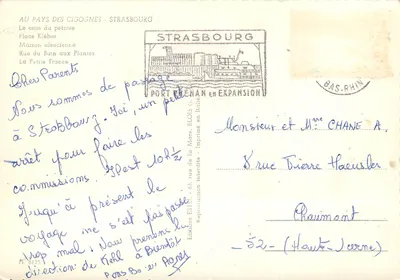 AU PAYS DES CIGOGNES - STRASBOURG
Le coin du pêcheur
Place Kléber
Maison alsacienne
Rue du Bain aux Plantes
La Petite France
STRASBOURG
PORT RHÉNAN EN EXPANSION
BAS-RHIN
Cher Parents
Nous sommes de passage
à Strasbourg. Ici, un petit
arrêt pour faire les
commissions. Il est 10h½
Jusqu'à présent le
voyage ne s'est pas passé
trop mal. Nous prenons la
direction de Kehl à Bientôt
Gros Bo
Monsieur et Mme CHANÉ A.
8 rue Pierre Haeusler
Chaumont
-52- (Haute-Marne)